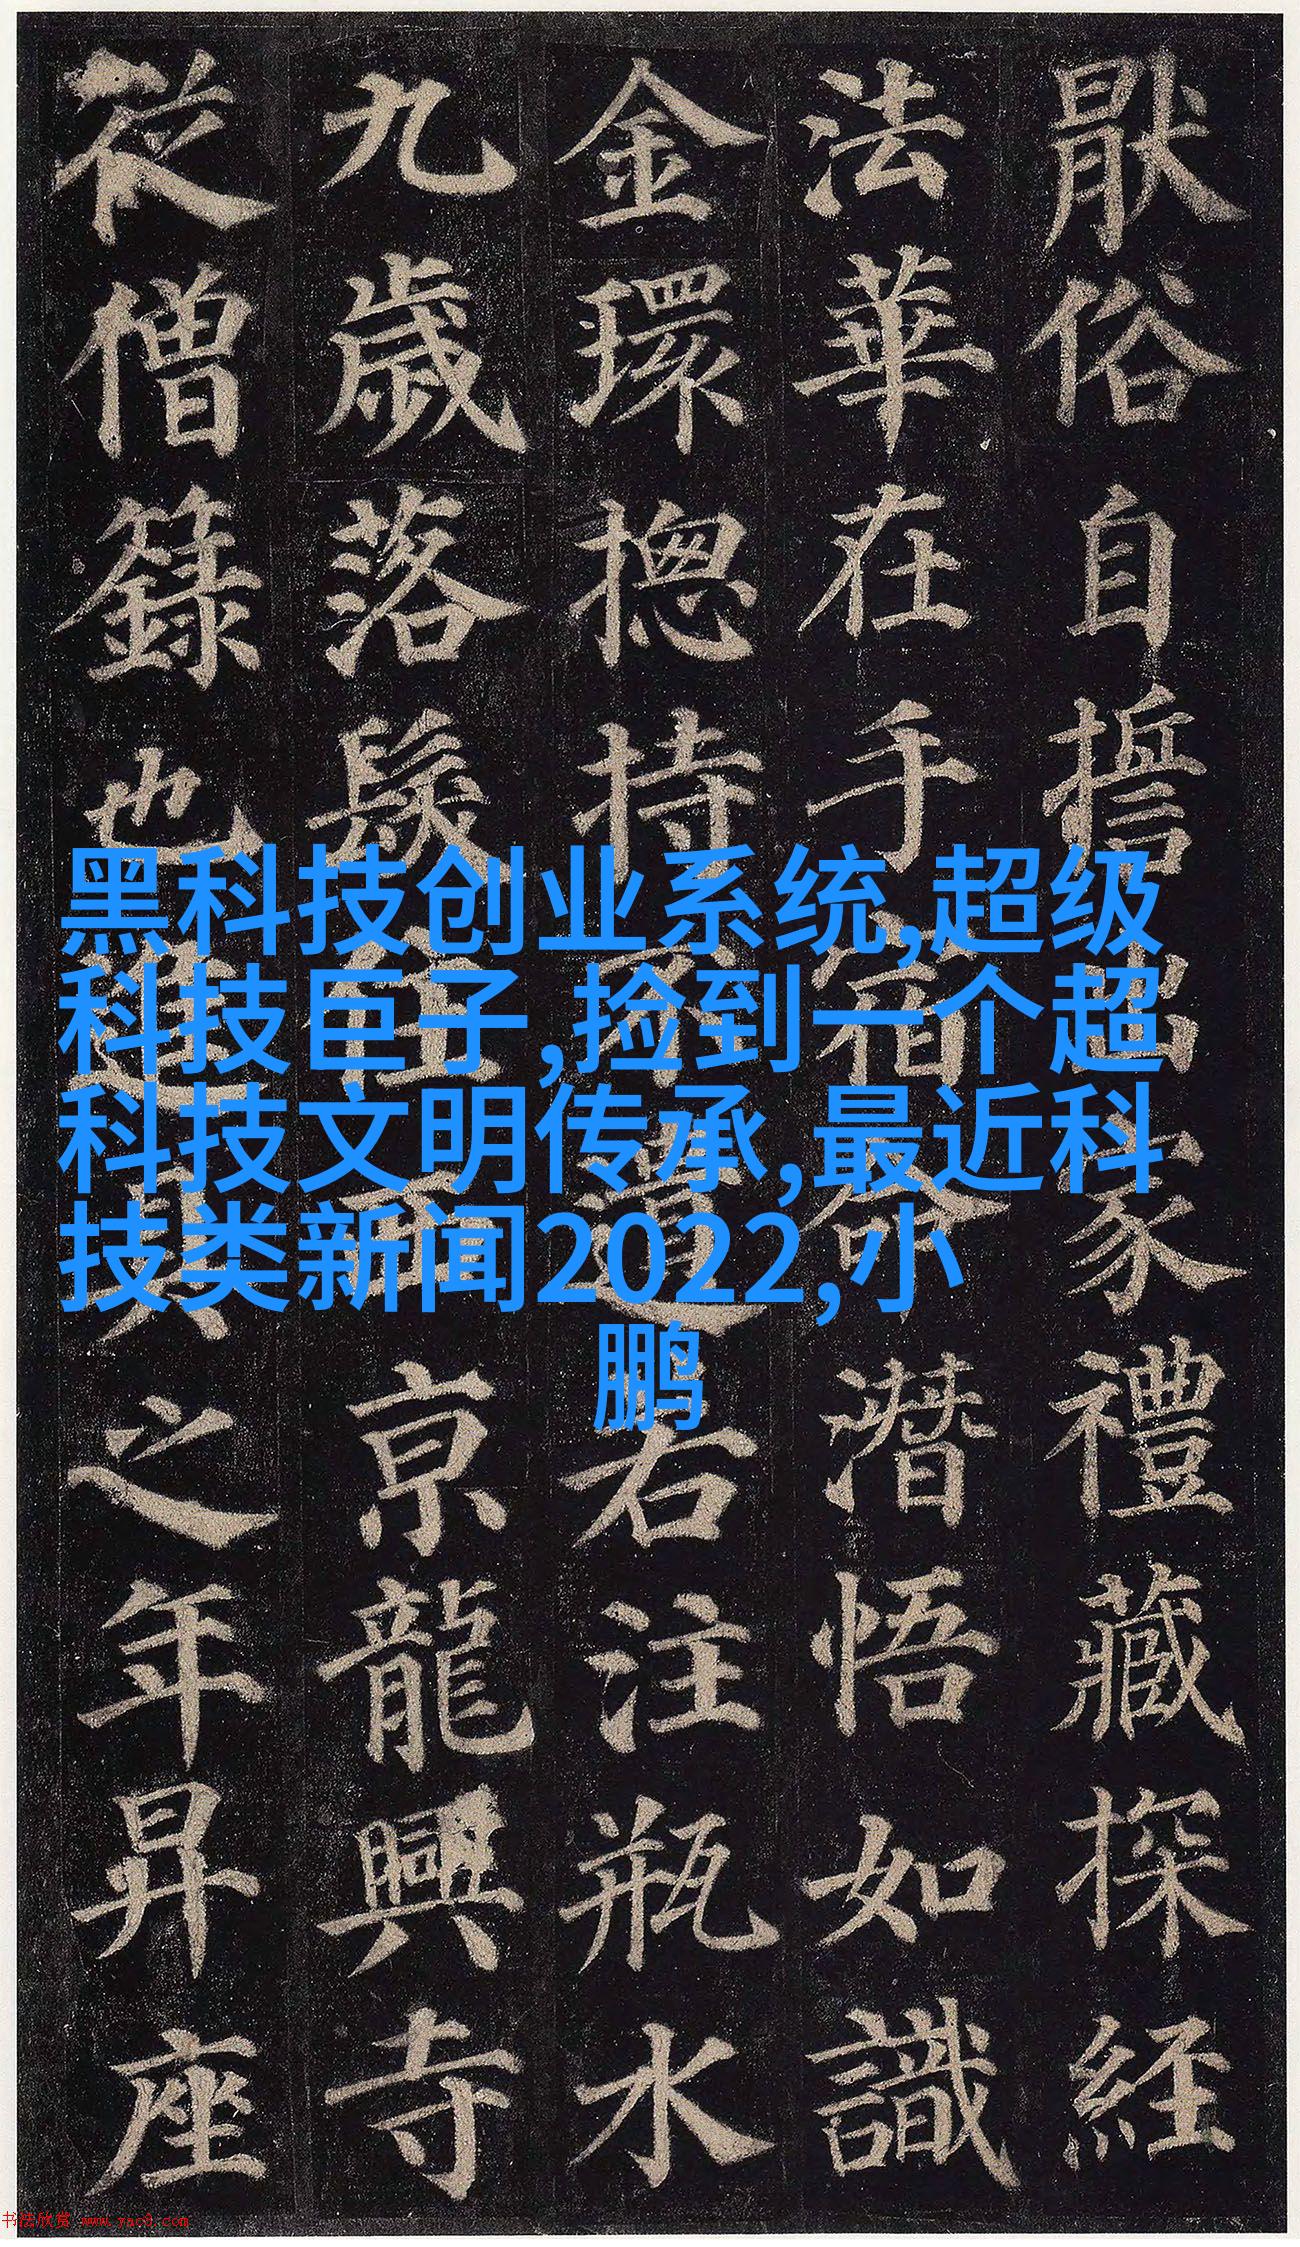 猒俗自誓出家禮藏探經
法華在手宿命潛悟如識
金環揔持不遺右注瓶水
九歲落髮住西京龍興寺
從僧籙也進具之年昇座
黑科技创业系统,超级
科技巨子,捡到一个超
科技文明传承,最近科
技类新闻2022,小
鹏
书法欣赏 www.yac8.com